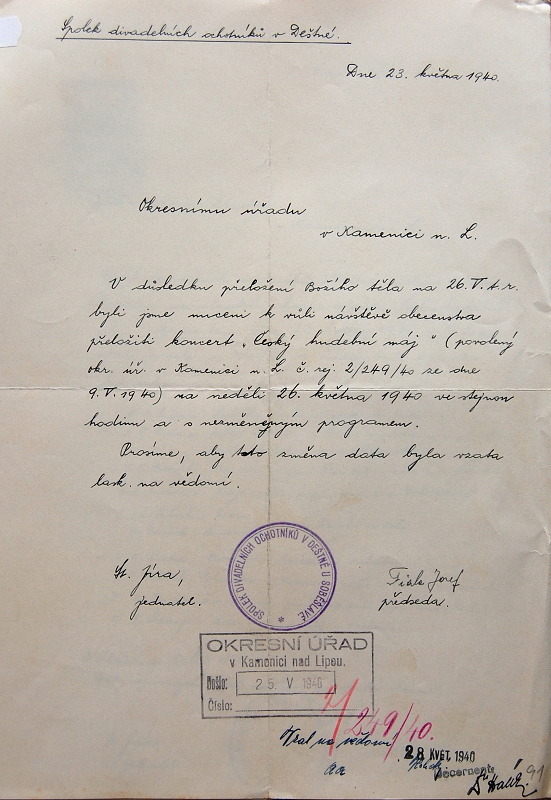 Spolek divadelních ochotníků v Deštné.
Dne 23. května 1940.
Okresnímu úřadu
v Kamenici n. L.
V důsledku přeložení Božího těla na 26.V. t. r.
byli jsme nuceni k vůli návštěvě obecenstva
přeložiti koncert „Český hudební máj" (povolený
okr. úř. v Kamenici n. L. č. rej. 2/249/40 ze dne
9. V. 1940) na neděli 26. května 1940 ve stejnou
hodinu a s nezměněným programem.
Prosíme, aby tato změna data byla vzata
lask. na vědomí.
St. Jíra,
jednatel.
SPOLEK DIVADELNÍCH OCHOTNÍKŮ V DEŠTNÉ U SOBĚSLAVĚ
Fiala Josef
předseda.
OKRESNÍ ÚŘAD
v Kamenici nad Lipou.
Došlo: 25. V 1940
Číslo:
2/249/40.
Vzal na vědomí
28 KVĚT. 1940
aa
Decernent:
91